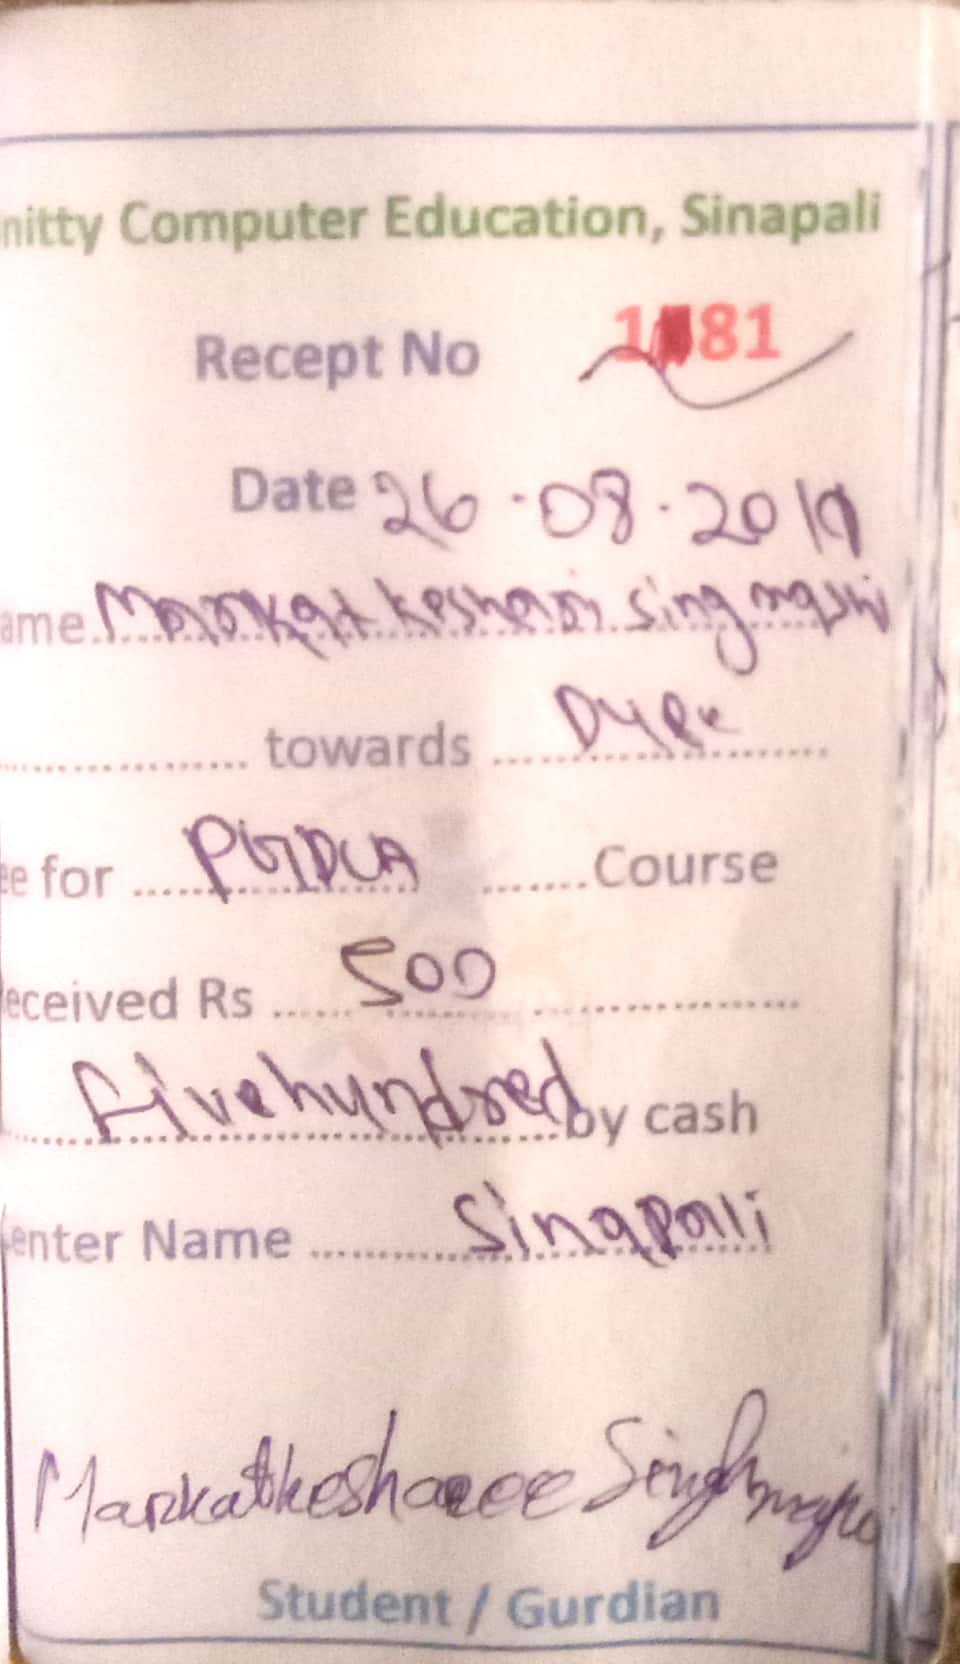 nitty Computer Education, Sinapali
Recept No 1 81
Date 26-08-2019
ame Markat keshari sing majhi
towards Due
ee for PGDCA Course
eceived Rs 500
five hundred by cash
enter Name Sinapali
Markatkesharee Singh majhi
Student / Gurdian